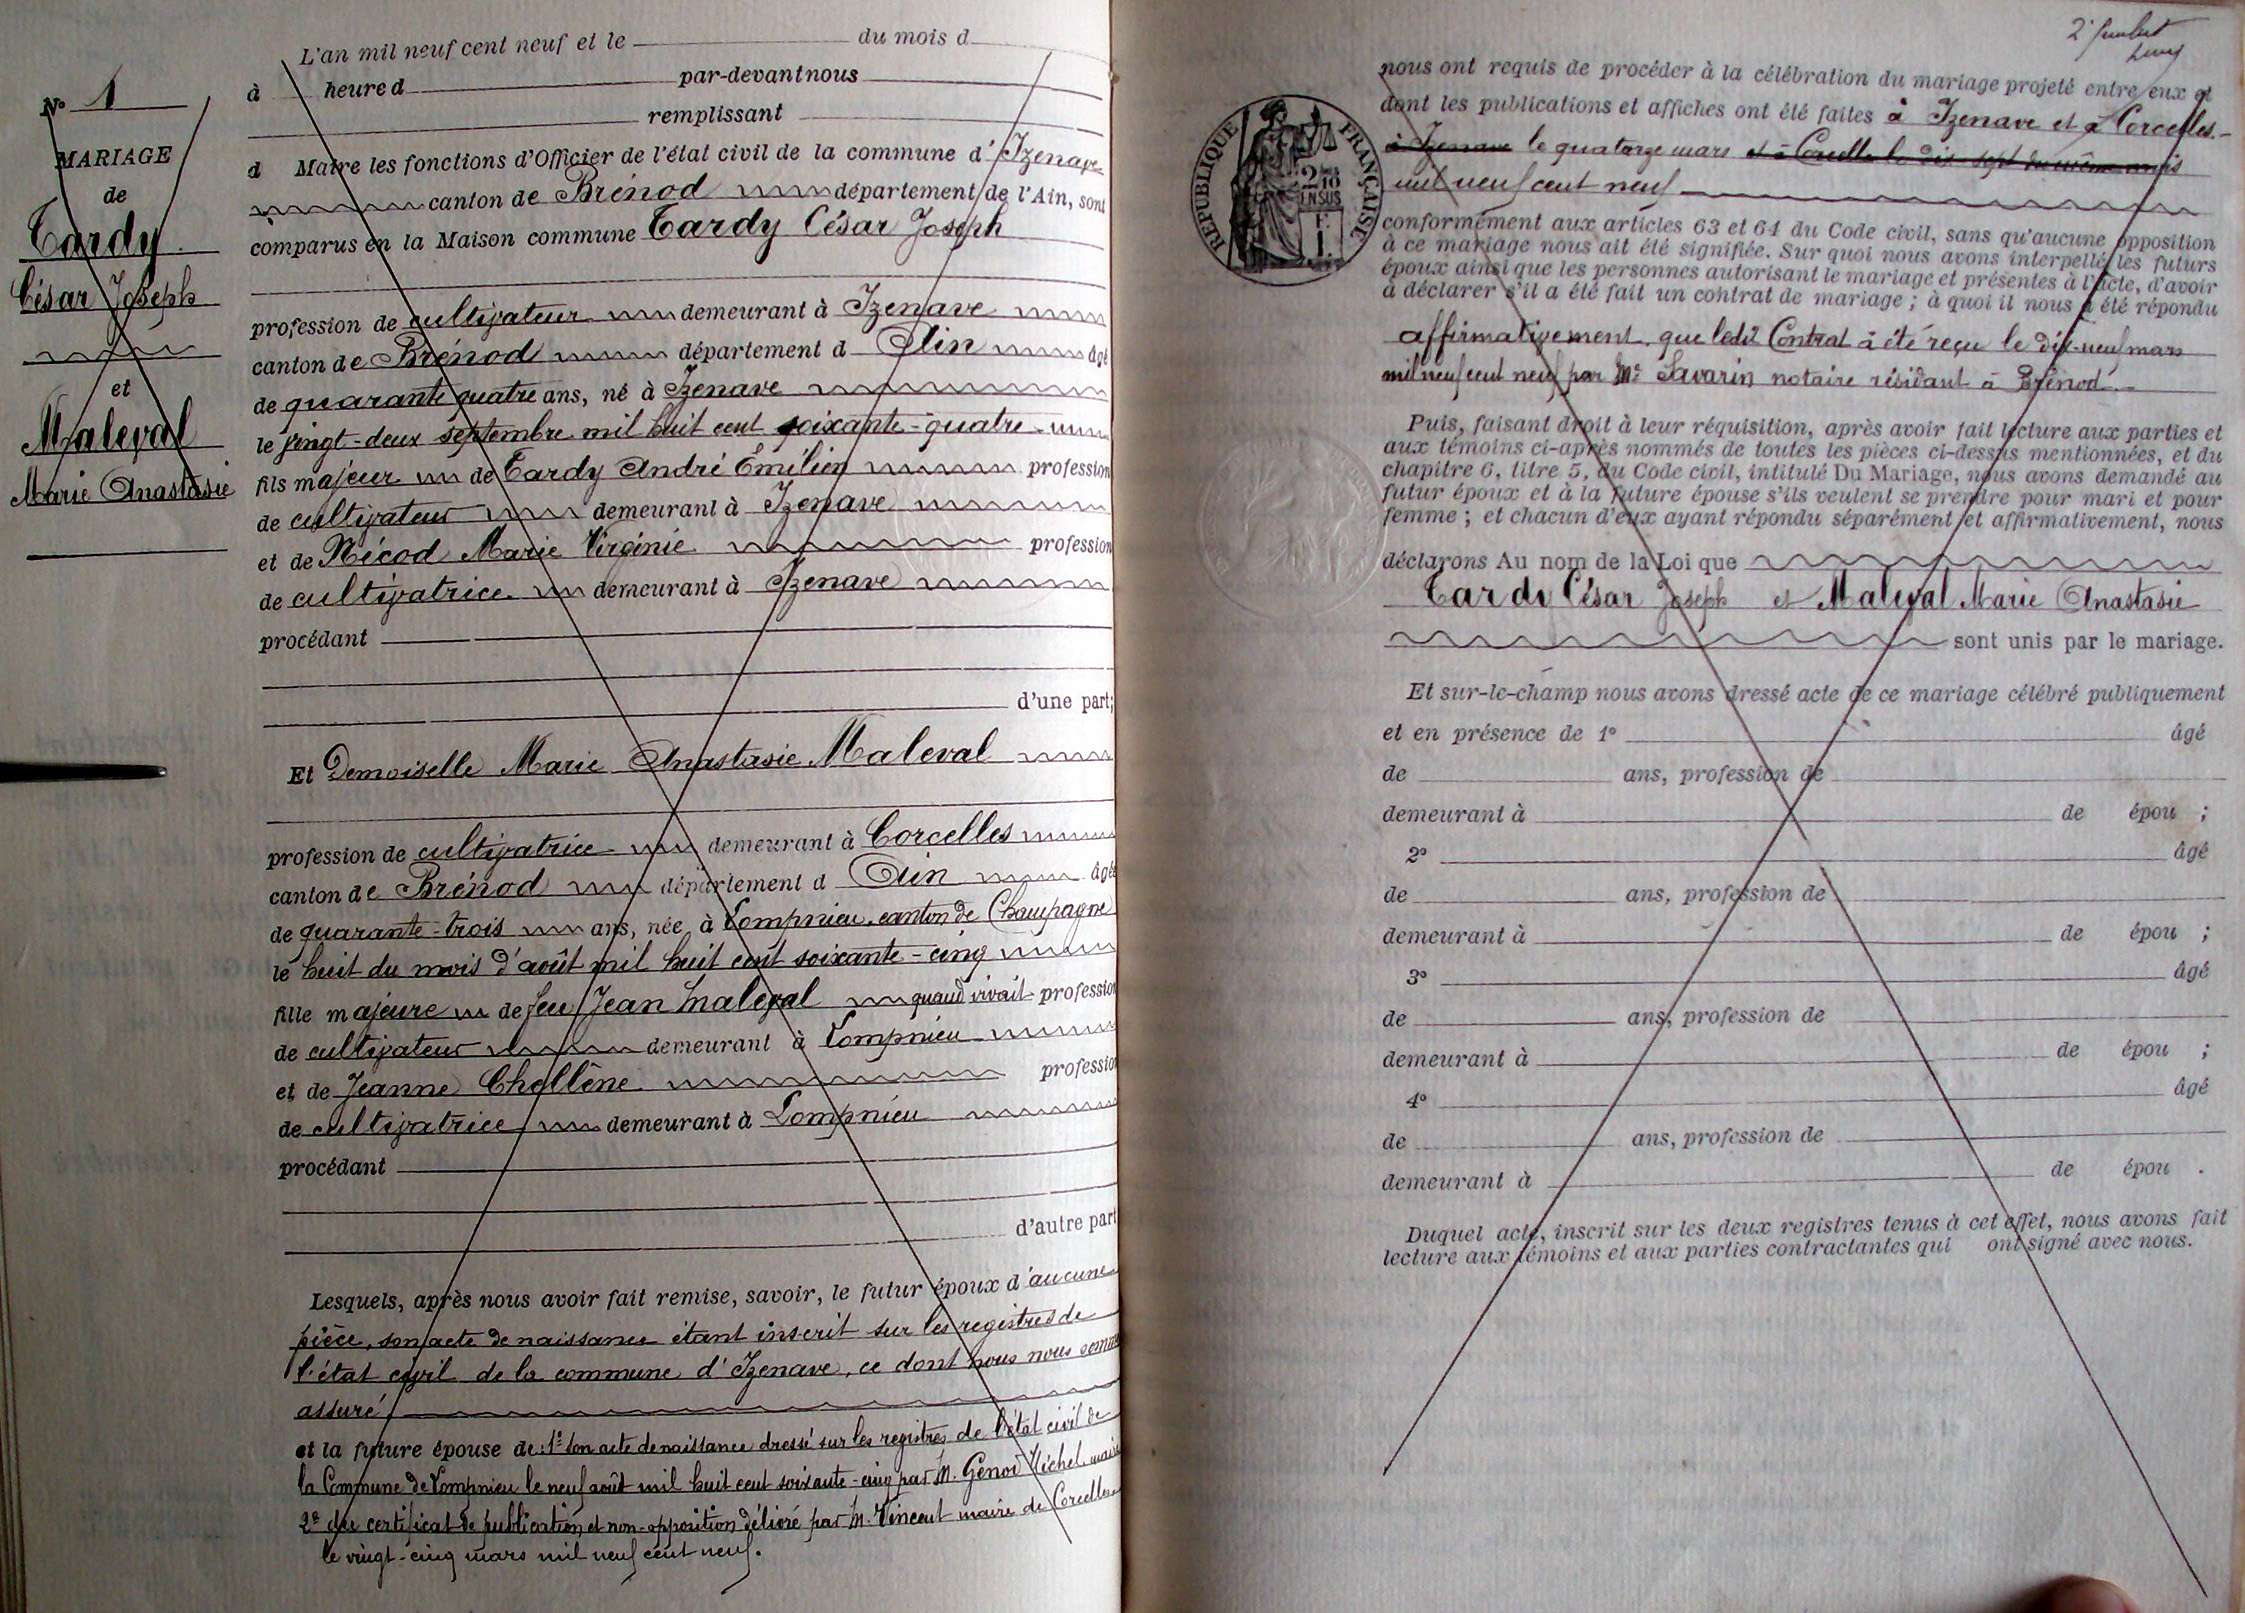 L'an mil neuf cent neuf et le du mois d
à heure d par-devant nous
remplissant
d Maire les fonctions d'Officier de l'état civil de la commune d'Izenave
canton de Brénod département de l'Ain, sont
comparus en la Maison commune Tardy César Joseph
profession de cultivateur demeurant à Izenave
canton de Brénod département d Ain âgé
de quarante quatre ans, né à Izenave
le vingt-deux septembre mil huit cent soixante-quatre
fils majeur de Tardy André Émilien profession
de cultivateur demeurant à Izenave
et de Nécod Marie Virginie profession
de cultivatrice demeurant à Izenave
procédant
d'une part;
Et Demoiselle Marie Anastasie Maleval
profession de cultivatrice demeurant à Corcelles
canton de Brénod département d Ain âgée
de quarante-trois ans, née à Lompnieu, canton de Champagne
le huit du mois d'août mil huit cent soixante-cinq
fille majeure de feu Jean Maleval quand vivait profession
de cultivateur demeurant à Lompnieu
et de Jeanne Chollêne profession
de cultivatrice demeurant à Lompnieu
procédant
d'autre part
Lesquels, après nous avoir fait remise, savoir, le futur époux d'aucune
pièce, son acte de naissance étant inscrit sur les registres de
l'état civil de la commune d'Izenave, ce dont nous nous somme
assuré
et la future épouse de: 1º son acte de naissance dressé sur les registres de l'état civil de
la Commune de Lompnieu le neuf août mil huit cent soixante-cinq par M. Genod Michel maire
2º du certificat de publication et non-opposition délivré par M. Vincent maire de Corcelles
le vingt-cinq mars mil neuf cent neuf.
Nº 1
MARIAGE
de
Tardy
César Joseph
et
Maleval
Marie Anastasie
2
nous ont requis de procéder à la célébration du mariage projeté entre eux et
dont les publications et affiches ont été faites à Izenave et à Corcelles
à Izenave le quatorze mars et à Corcelles le dix sept du même mois
mil neuf cent neuf
conformément aux articles 63 et 64 du Code civil, sans qu'aucune opposition
à ce mariage nous ait été signifiée. Sur quoi nous avons interpellé les futurs
époux ainsi que les personnes autorisant le mariage et présentes à l'acte, d'avoir
à déclarer s'il a été fait un contrat de mariage; à quoi il nous a été répondu
affirmativement que ledit Contrat à été reçu le dix-neuf mars
mil neuf cent neuf par Me Savarin notaire résidant à Brénod.
Puis, faisant droit à leur réquisition, après avoir fait lecture aux parties et
aux témoins ci-après nommés de toutes les pièces ci-dessus mentionnées, et du
chapitre 6, titre 5, du Code civil, intitulé Du Mariage, nous avons demandé au
futur époux et à la future épouse s'ils veulent se prendre pour mari et pour
femme; et chacun d'eux ayant répondu séparément et affirmativement, nous
déclarons Au nom de la Loi que
Tardy César Joseph et Maleval Marie Anastasie
sont unis par le mariage.
Et sur-le-champ nous avons dressé acte de ce mariage célébré publiquement
et en présence de 1º âgé
de ans, profession de
demeurant à de épou ;
2º âgé
de ans, profession de
demeurant à de épou ;
3º âgé
de ans, profession de
demeurant à de épou ;
4º âgé
de ans, profession de
demeurant à de épou .
Duquel acte, inscrit sur les deux registres tenus à cet effet, nous avons fait
lecture aux témoins et aux parties contractantes qui ont signé avec nous.
REPUBLIQUE FRANÇAISE